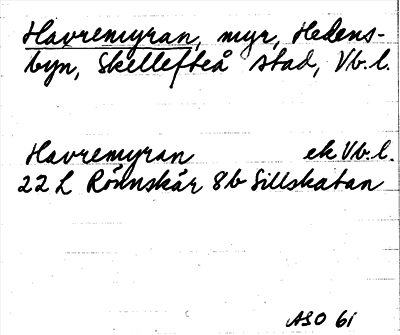 Havremyran, myr, Hedens-
byn, Skellefteå stad, Vb. l.
Havremyran ek Vb. l.
22 L Rönnskär 8b Sillskatan
ASO 61